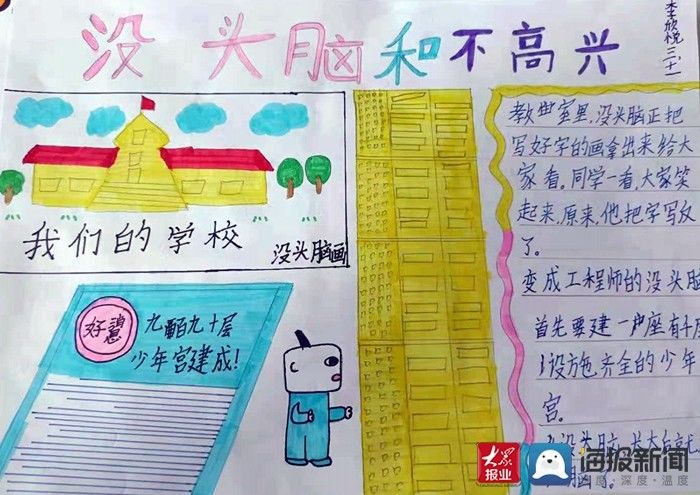 没头脑和不高兴
李欣悦三(十一)
我们的学校
没头脑画
好消息
九百九十层
少年宫建成!
室里,没头脑正把
写好字的画拿出来给大
家看。同学一看,大家笑
起来,原来,他把字写反
了。
变成工程师的没头脑
首先要建一座有十
设施齐全的少年
宫。
没头脑
脑了。
大众报业
海报新闻
态度·深度·温度